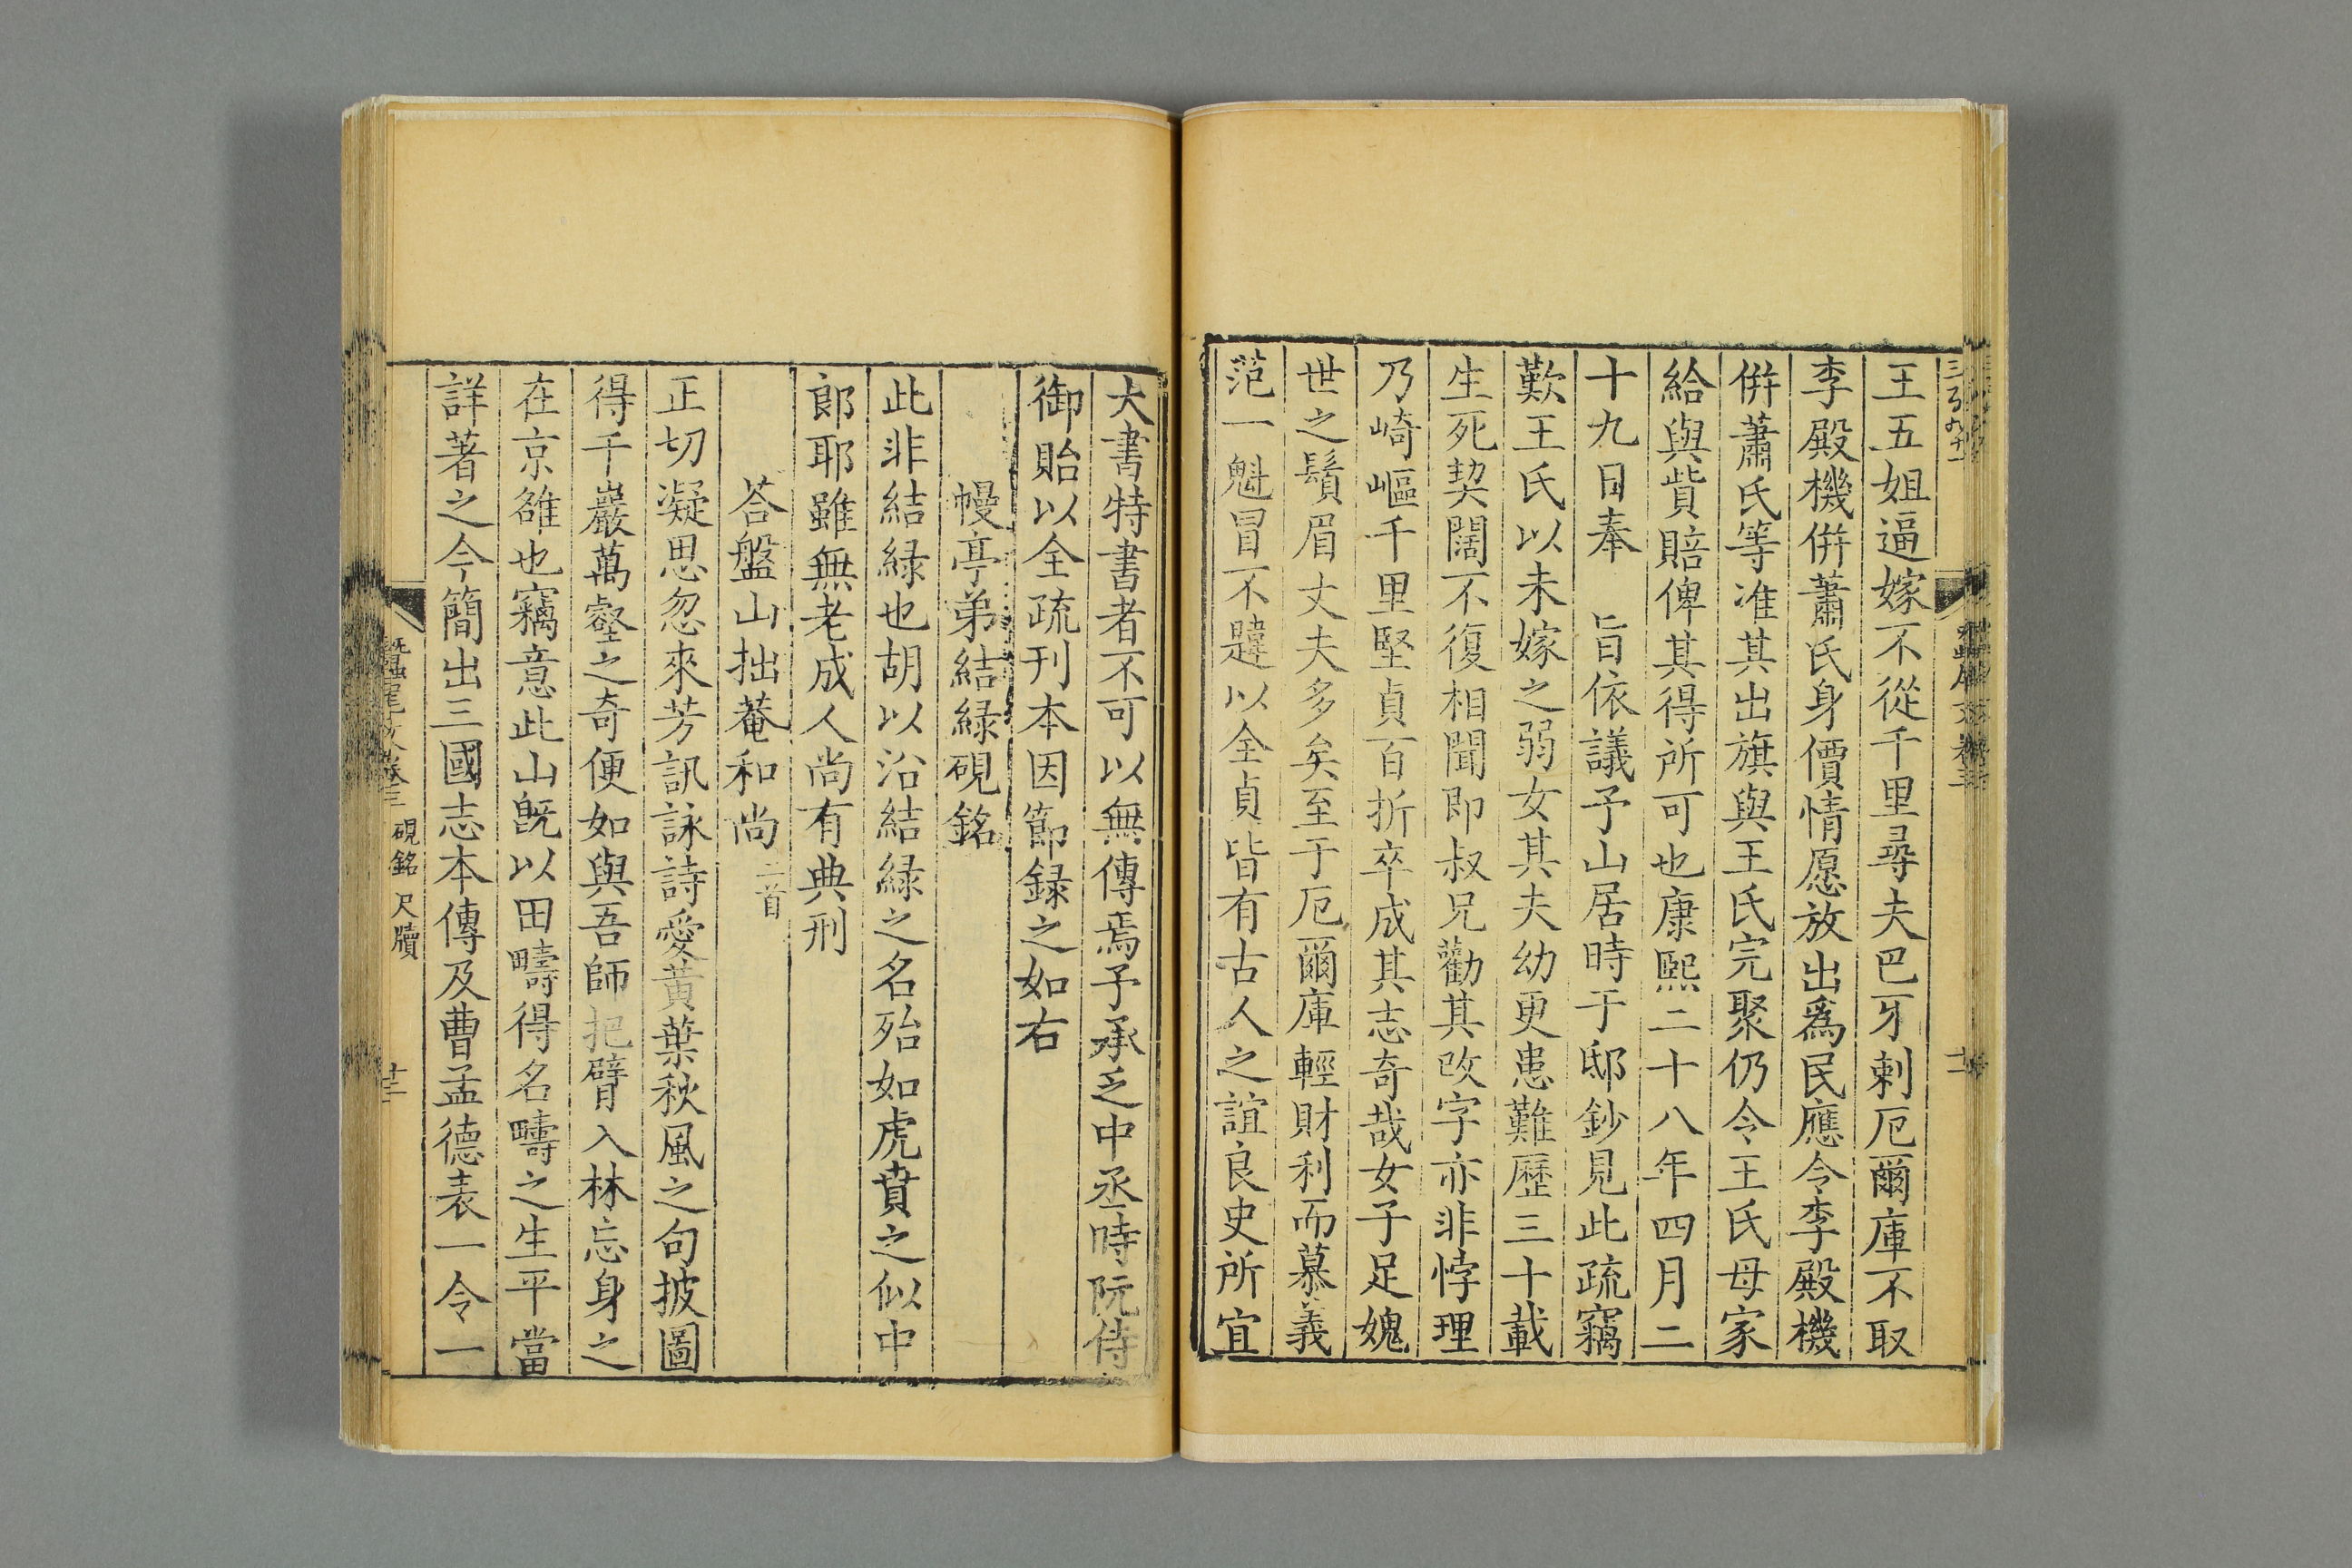 王五姐逼嫁不從千里尋夫巴牙剌厄爾庫不取
李殿機併蕭氏身價情愿放出爲民應令李殿機
併蕭氏等准其出旗與王氏完聚仍令王氏母家
給與貲賠俾其得所可也康熙二十八年四月二
十九日奉 旨依議予山居時于邸鈔見此疏竊
歎王氏以未嫁之弱女其夫幼更患難歷三十載
生死契闊不復相聞即叔兄勸其改字亦非悖理
乃崎嶇千里堅貞百折卒成其志奇哉女子足媿
世之鬚眉丈夫多矣至于厄爾庫輕財利而慕義
范一魁冒不韙以全貞皆有古人之誼良史所宜
大書特書者不可以無傳焉予承乏中丞時阮侍
御貽以全疏刊本因節録之如右
幔亭弟結緑硯銘
此非結緑也胡以沿結緑之名殆如虎賁之似中
郎耶雖無老成人尚有典刑
荅盤山拙菴和尚二首
正切凝思忽來芳訊詠詩愛黃葉秋風之句披圖
得千巖萬壑之奇便如與吾師把臂入林忘身之
在京雒也竊意此山旣以田疇得名疇之生平當
詳著之今簡出三國志本傳及曹孟德表一令一
蠶尾文卷三 硯銘 尺牘 十二